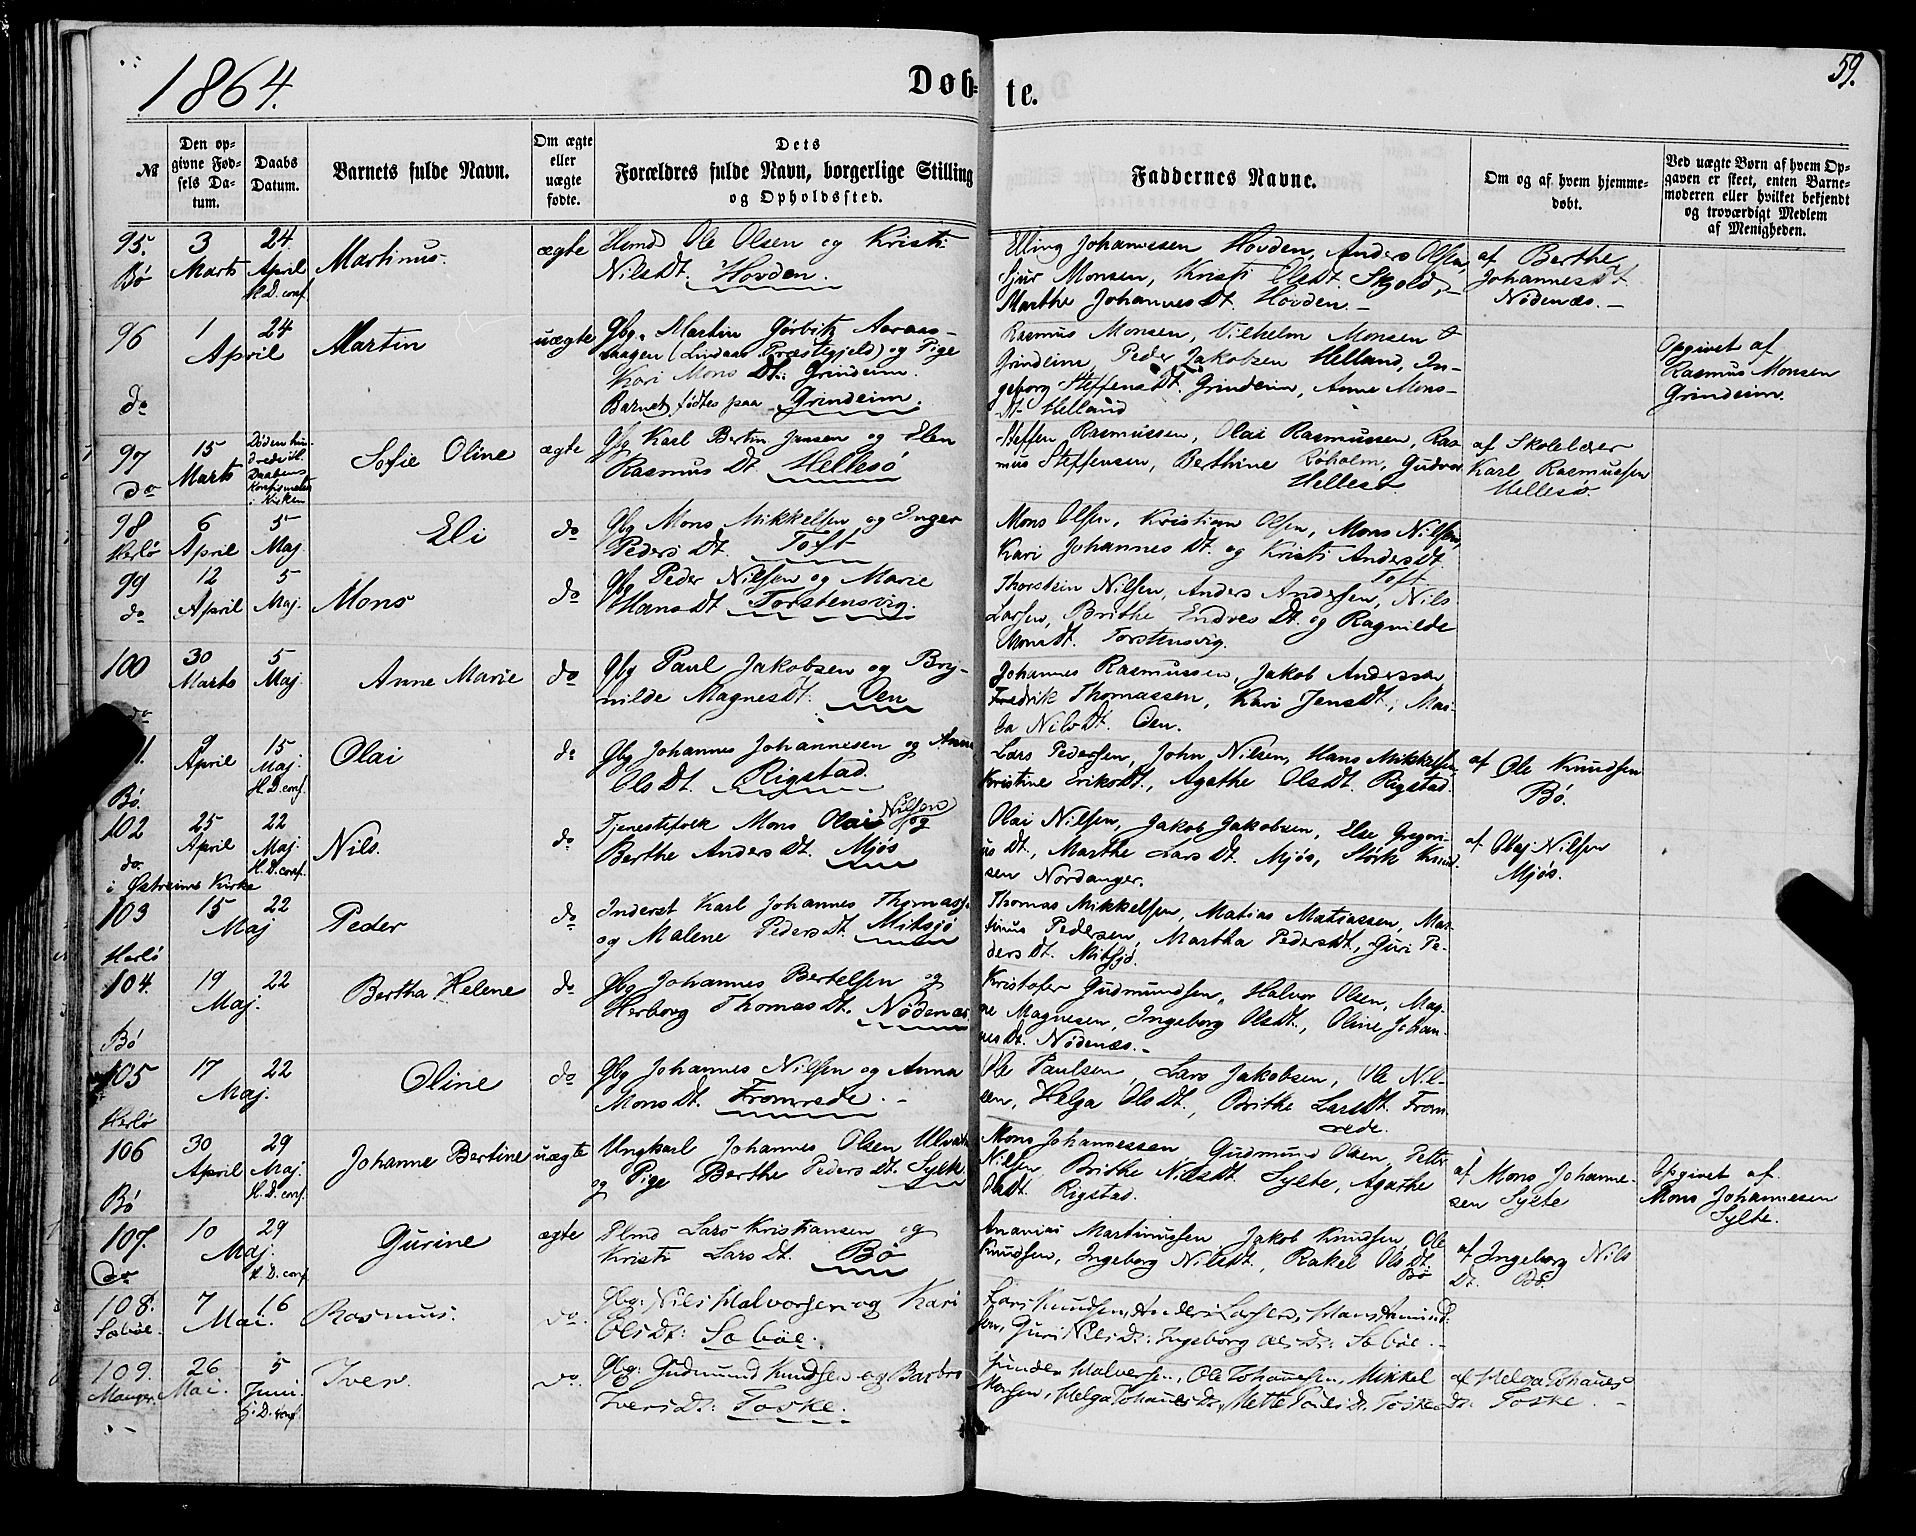 1864.
Døb-
te.
59.
№
Den op-
givne Fød-
sels Da-
tum.
Daabs
Datum.
Barnets fulde Navn.
Om ægte
eller
uægte
fødte.
Dets
Forældres fulde Navn, borgerlige Stilling
og Opholdssted.
Faddernes Navne.
Om og af hvem hjemme-
døbt.
Ved uægte Børn af hvem Op-
gaven er skeet, enten Barne-
moderen eller hvilket bekjendt
og troværdigt Medlem
af Menigheden.
95.
Bø
3
Marts
24.
April
H.D. conf.
Martinus.
ægte
Hmd Ole Olsen og Kristi
Nilsdt. Hovden.
Elling Johannesen Hovden, Anders Olsen,
Sjur Monsen, Kristi Olsdt. Skjold,
Marthe Johannesdt. Hovden.
af Berthe
Johannesdt.
Nødenæs.
96
do
1
April
24
Martin
uægte
Gbg. Martin Gørbitz Aaraas-
haagen (Lindaas Præstegjeld) og Pige
Kari Mons Dt.: Grindeim.
Barnet fødtes paa Grindeim.
Rasmus Monsen, Vilhelm Monsen
Grindeim, Peder Jakobsen Helland, In-
geborg Steffensdt. Grindeim, Anne Mons-
dt. Helland
Opgivet af
Rasmus Monsen
Grindeim.
97
do
15
Marts
Døden hin-
drede itl.
Daabens
Konfirmation
i Kirken
Sofie Oline
ægte
Gbg Karl Bertin Jansen og Elen
Rasmus Dt. Hellesø
Steffen Rasmussen, Olai Rasmussen, Ras-
mus Steffensen, Berthine Røholm, Gudvor
Hellesø.
af Skolelærer
Karl Rasmussen
Hellesø.
98
Herlø
6
April
5
Maj.
Eli
do
Gbg Mons Mikkelsen og Inger
Peders Dt. Toft
Mons Olsen, Kristian Olsen, Mons Nilsen,
Kari Johannes Dt. og Kristi Anders Dt.
Toft.
99
do
12
April
5
Maj.
Mons
do
Gbg Peder Nilsen og Marie
Hansdt. Torstensvig.
Thorstein Nilsen, Anders Andersen, Nils
Larsen, Brithe Endres Dt. og Ragnilde
Monsdt. Torstensvig.
100
do
30
Marts
5
Maj.
Anne Marie
do
Gbg Paul Jakobsen og Bry-
nilde Magnesdt. Oen
Johannes Rasmussen, Jakob Anderssen
Fredrik Thomassen, Kari Jensdt., Mar-
ta Nilsdt. Oen.
1.
Bø.
9
April
15
Maj.
H.D. conf.
Olai
do
Gbg Johannes Johannesen og Anne
Olsdt. Rigstad.
Lars Pedersen, John Nilsen, Hans Mikkelsen
Kristine Eriksdt., Agathe Olsdt. Rigstad.
af Ole Knudsen
Bø.
102
do
i Østreims Kirke
25
April
22
Maj.
H.D. conf.
Nils.
do
Tjenestefolk Mons Olai Nilsen og
Berthe Anders Dt. Mjøs
Olai Nilsen, Jakob Jakobsen, Else Gregori-
us Dt., Marthe Lars Dt. Mjøs, Størk Knud-
sen Nordanger.
af Olaj Nilsen
Mjøs.
103
Herlø
15
Maj
22
Peder
do
Inderst Karl Johannes Thomass.
og Malene Pedersdt. Mitsjø
Thomas Mikkelsen, Matias Matiassen, Mar-
tinus Pedersen, Martha Pedersdt., Guri Pe-
dersdt. Mitsjø.
104.
Bø
19
Maj.
22
Bertha Helene
do
Gbg Johannes Bertelsen og
Herborg Thomasdt. Nødenæs
Kristofer Gudmundsen, Halvor Olsen, Mag-
ne Magnesen, Ingeborg Olsdt., Oline Johan-
nesdt. Nødenæs.
105
Herlø
17
Maj.
22
Oline
do
Gbg Johannes Nilsen og Anna
Monsdt. Fromrede.
Ole Paulsen, Lars Jakobsen, Ole Nil-
sen, Helga Olsdt., Brithe Larsdt. From-
rede.
106
Bø
30
April
29
Maj.
H.D. conf.
Johanne Bertine
uægte
Ungkarl Johannes Olsen
og Pige Berthe Pedersdt. Sylte
Mons Johannessen, Gudmund Olsen, Petter
Nilsen, Brithe Nilsdt. Sylte, Agathe
Olsdt. Rigstad.
af Mons Johanne-
sen Sylte
Opgivet af
Mons Johannesen
Sylte.
107.
do
10
Maj.
29
H.D. conf
Gurine
ægte
Hmd Lars Kristiansen og
Kristi Larsdt. Bø
Ananias Martinussen, Jakob Knudsen, Ole
Knudsen, Ingeborg Nilsdt., Rakel Olsdt.
Bø
af Ingeborg Nils
Dt. Bø.
108.
Sæbøe.
7
Mai.
16
Rasmus.
do.
Gbg: Nils Halvorsen og Kari
Olsdt: Sæbøe.
Lars Knudsen, Anders Larsen, Hans Amund-
sen, Guri Nilsdt: Ingeborg Olsdt: Sæbøe.
109.
Manger.
26
Mai.
5
Juni
H.D. conf.
Iver.
do.
Gbg: Gudmund Knudsen og Barbro
Iversdt: Toske.
Halvorsen, Ole Johannesen, Mikkel
Monsen, Helga Johannesdt, Mette Poulsdt. Toske
af Helga Johannes
Dt: Toske.